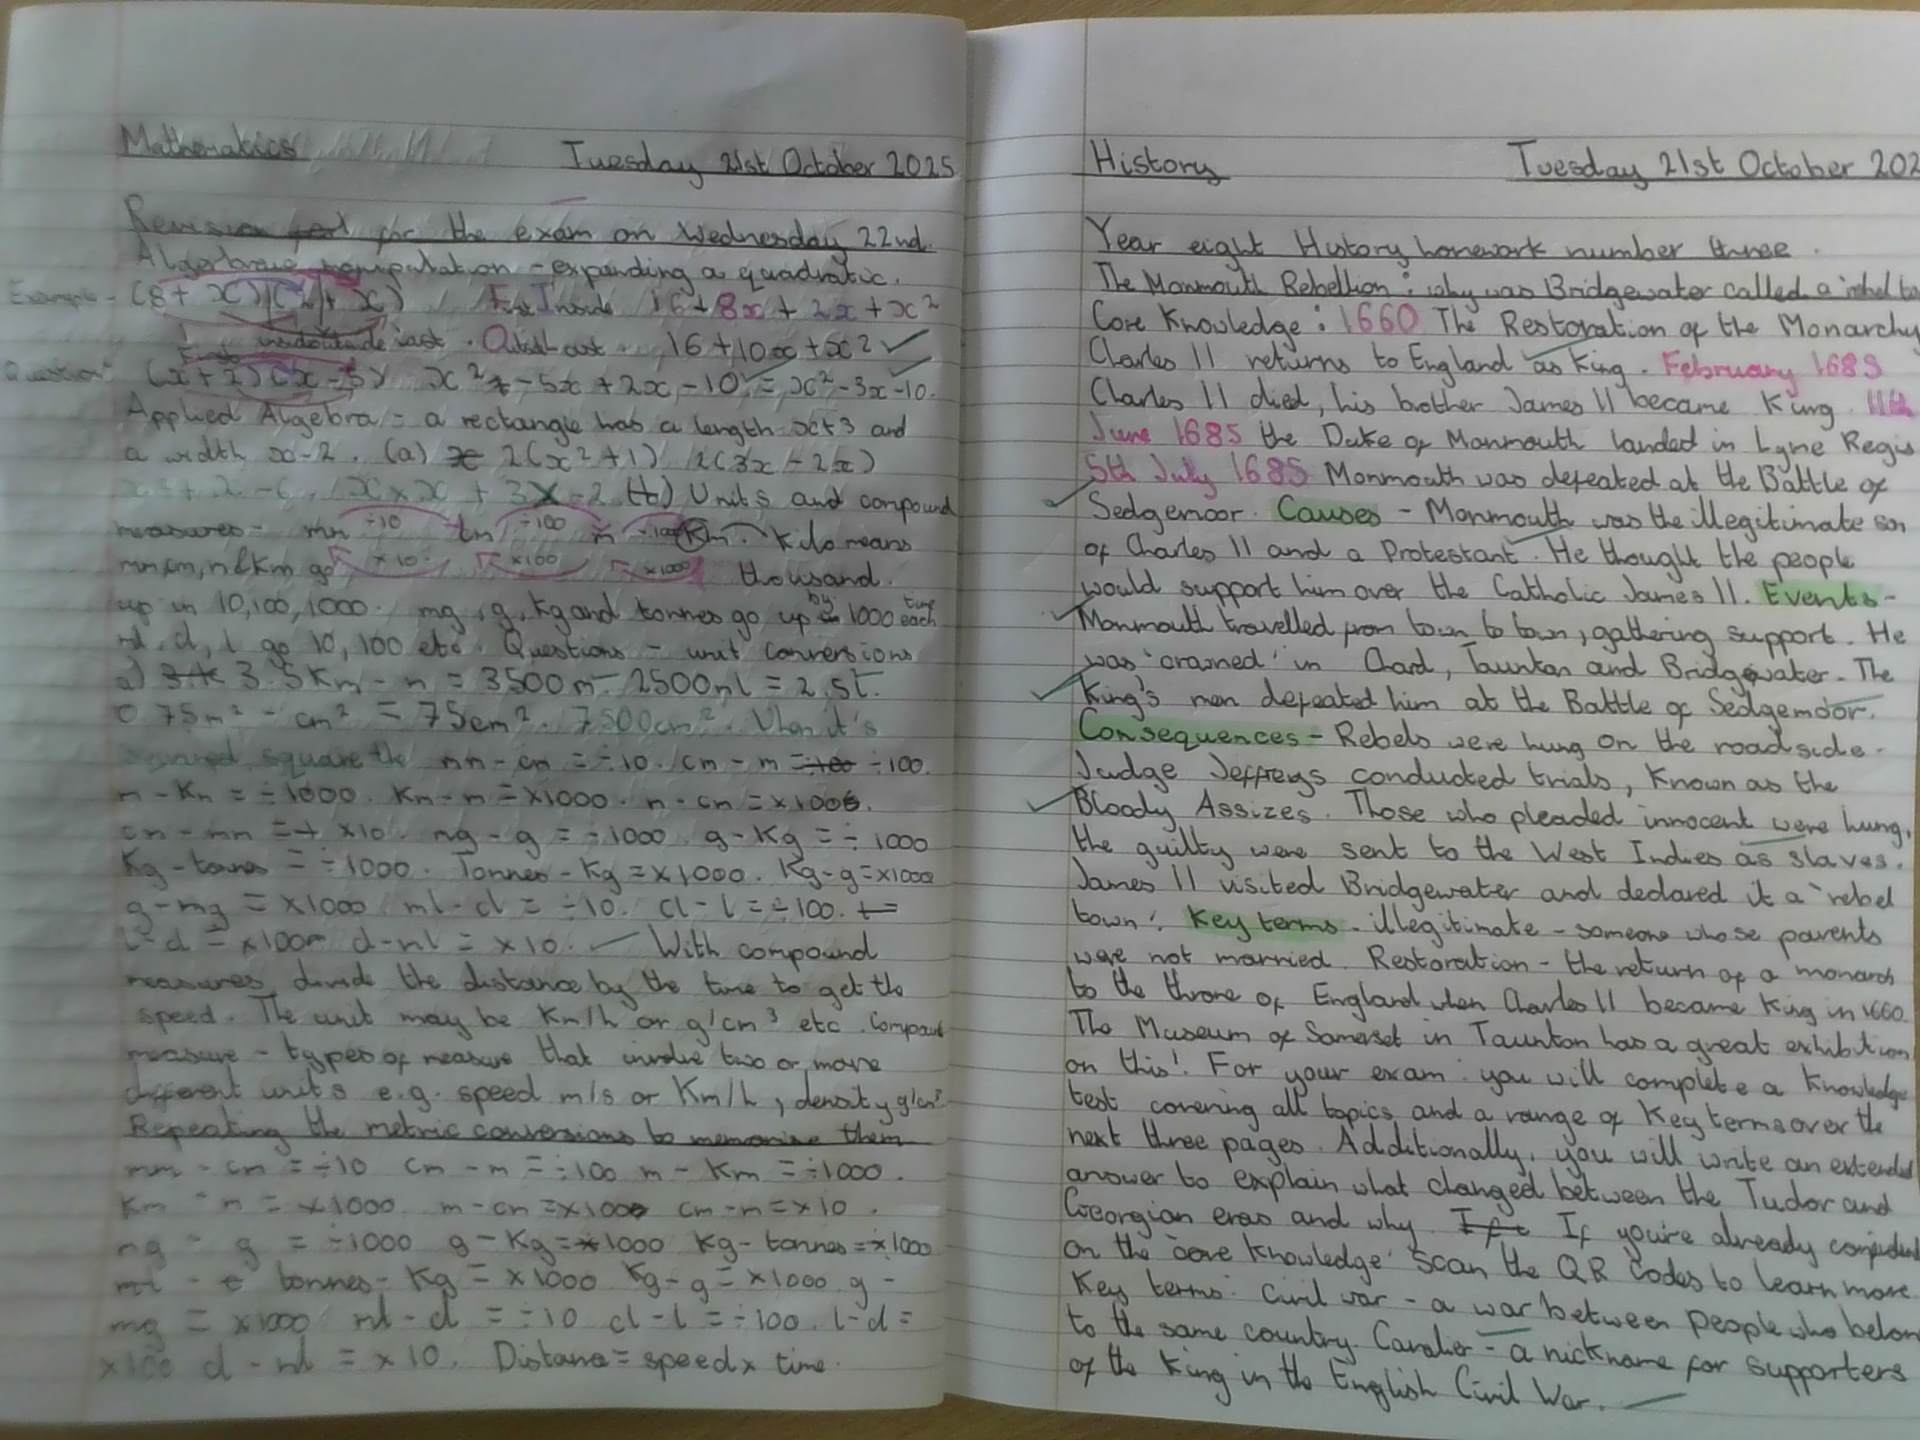 Mathematics Tuesday 21st October 2025
Revision for the exam on Wednesday 22nd.
Algebraic manipulation - expanding a quadratic.
Example - (8 + x)(2 + x) First Inside 16 + 8x + 2x + x²
last. Outside 16 + 10x + x²
Question (x+2)(x-5) x² - 5x + 2x - 10 = x² - 3x - 10.
Applied Algebra - a rectangle has a length x+3 and
a width x-2. (a) 2(x²+1) 2(3x-2x)
x × x + 3 × -2 (b) Units and compound
measures - mm ÷10 cm ÷100 m ÷1000 Km. Kilo means
mm, cm, m & Km go ×10 ×100 ×1000 thousand.
up in 10, 100, 1000. mg, g, Kg and tonnes go up by 1000 each time
ml, cl, l go 10, 100 etc. Questions - unit conversions
a) 3.5Km - m = 3500m 2500ml = 2.5l.
0.75m² - cm² = 75cm². 7500cm². When it's
squared, square the mm - cm = ÷10. cm - m = ÷100 ÷100.
m - Km = ÷1000. Km - m = ×1000. m - cm = ×100.
cm - mm = ×10. mg - g = ÷1000. g - Kg = ÷1000
Kg - tonnes = ÷1000. Tonnes - Kg = ×1000. Kg - g = ×1000
g - mg = ×1000 ml - cl = ÷10. cl - l = ÷100.
l - cl = ×100 cl - ml = ×10. With compound
measures, divide the distance by the time to get the
speed. The unit may be Km/h or g/cm³ etc. Compound
measure - types of measure that involve two or more
different units e.g. speed m/s or Km/h, density g/cm³
Repeating the metric conversions to memorise them
mm - cm = ÷10 cm - m = ÷100 m - Km = ÷1000.
Km - m = ×1000 m - cm = ×100 cm - m = ×10.
mg - g = ÷1000 g - Kg = 1000 Kg - tonnes = 1000
ml - tonnes - Kg = ×1000 Kg - g = ×1000. g -
mg = ×1000 ml - cl = ÷10 cl - l = ÷100. l - cl =
×100 cl - ml = ×10. Distance = speed × time.
History Tuesday 21st October 202
Year eight History homework number three.
The Monmouth Rebellion: why was Bridgewater called a 'rebel to
Core Knowledge: 1660 The Restoration of the Monarchy
Charles II returns to England as King. February 1685
Charles II died, his brother James II became King. 11th
June 1685 the Duke of Monmouth landed in Lyme Regis
5th July 1685 Monmouth was defeated at the Battle of
Sedgemoor. Causes - Monmouth was the illegitimate son
of Charles II and a Protestant. He thought the people
would support him over the Catholic James II. Events -
Monmouth travelled from town to town, gathering support. He
was 'crowned' in Chard, Taunton and Bridgewater. The
King's men defeated him at the Battle of Sedgemoor.
Consequences - Rebels were hung on the roadside.
Judge Jeffreys conducted trials, known as the
Bloody Assizes. Those who pleaded innocent were hung,
the guilty were sent to the West Indies as slaves.
James II visited Bridgewater and declared it a 'rebel
town'. Key terms - illegitimate - someone whose parents
were not married. Restoration - the return of a monarch
to the throne of England when Charles II became King in 1660.
The Museum of Somerset in Taunton has a great exhibition
on this! For your exam: you will complete a Knowledge
test covering all topics and a range of Key terms over the
next three pages. Additionally, you will write an extended
answer to explain what changed between the Tudor and
Georgian eras and why. If you're already confident
on the 'core knowledge' scan the QR codes to learn more
Key terms: Civil war - a war between people who belon
to the same country. Cavalier - a nickname for supporters
of the King in the English Civil War.